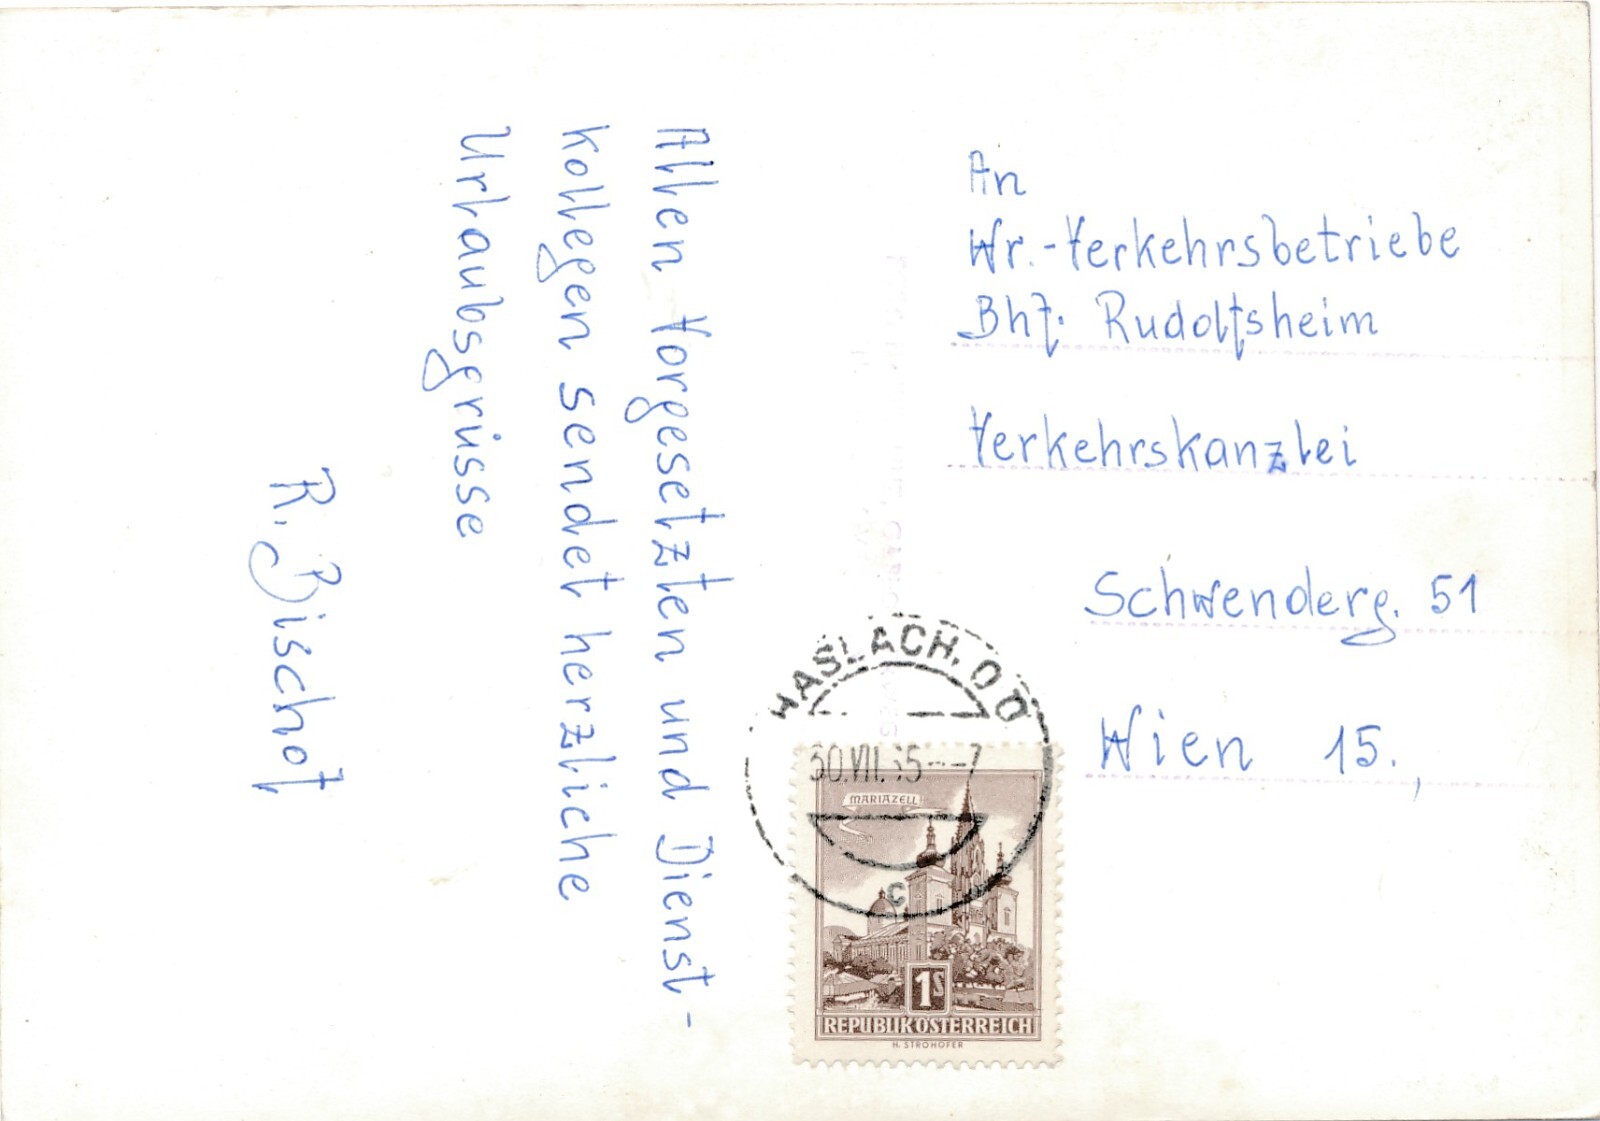 Allen Vorgesetzten und Dienst-
Kollegen sendet herzliche
Urlaubsgrüsse
R. Bischof
An
Wr.-Verkehrsbetriebe
Bhf. Rudolfsheim
Verkehrskanzlei
Schwenderg. 51
Wien 15.,
HASLACH, OÖ
30.VII.65--7
C
MARIAZELL
1S
REPUBLIK ÖSTERREICH
H. STROHOFER